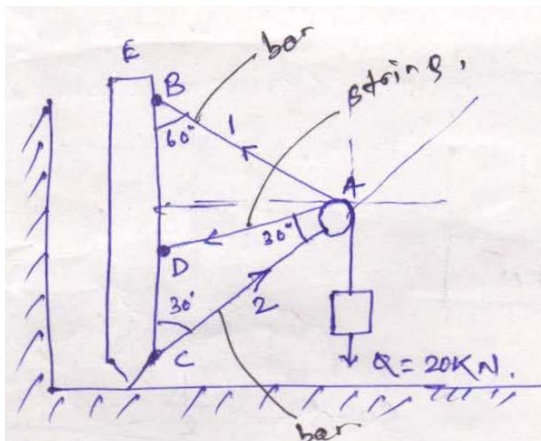 bar
E
B
string,
60°
1
A
30°
D
30°
2
C
Q = 20KN.
bar